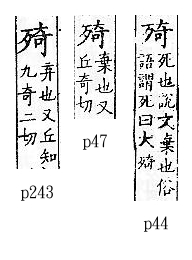 㱦
死也說文棄也俗
語謂死曰大㱦
p44
㱦
棄也又
丘奇切
p47
㱦
弃也又丘知
九奇二切
p243